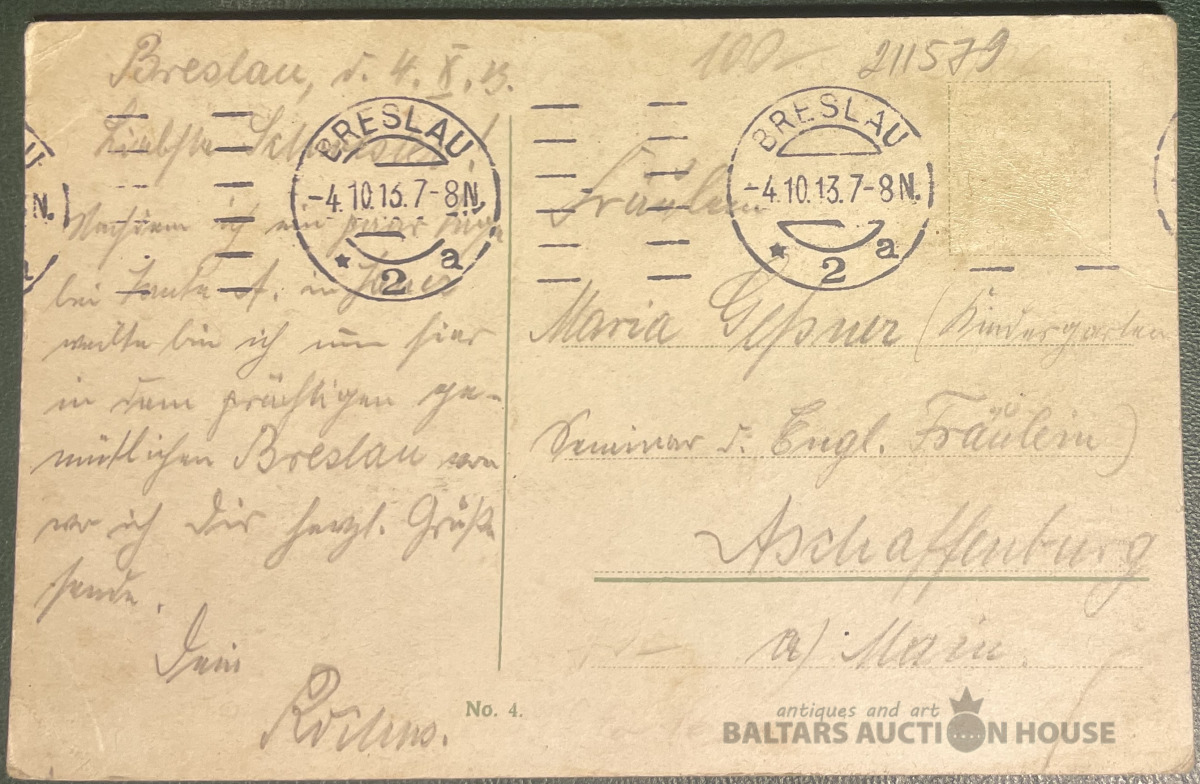 Breslau, d. 4. X. 13.
Liebste
Nachdem ich ein paar Tage
bei Tante A. in
weilte bin ich nun hier
in dem prächtigen ge-
mütlichen Breslau von
wo ich Dir herzl. Grüße
sende.
Dein
100-
211579
BRESLAU
-4.10.13.7-8N.
* 2 a
BRESLAU
-4.10.13.7-8N.
* 2 a
Fräulein
Maria Geßner (Kindergarten
Seminar d. Engl. Fräulein)
Aschaffenburg
a/ Main
No. 4.
antiques and art
BALTARS AUCTION HOUSE